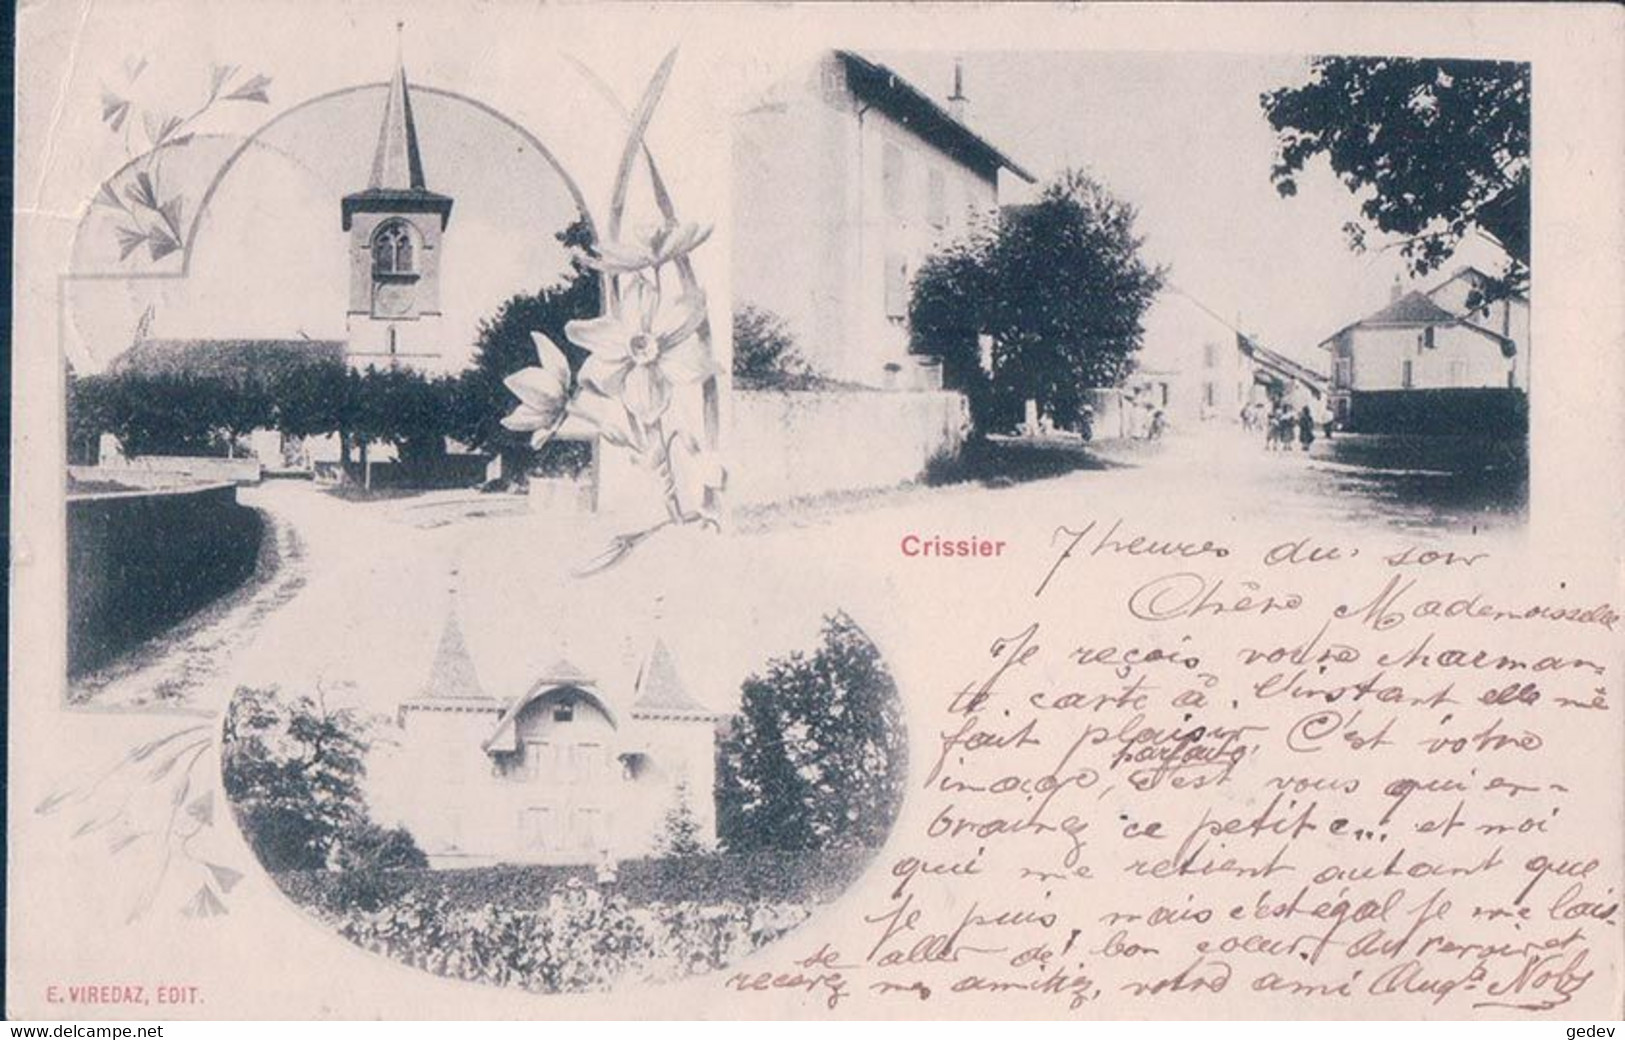 Crissier
7 heures du soir
Chère Mademoiselle
Je reçois votre charman-
te carte à l'instant elle me
fait plaisir. C'est votre
parfaite
image, c'est vous qui en-
ce petit c... et moi
qui me retient autant que
je puis, mais c'est égal je me lais-
se aller de bon coeur. Au revoir et
recevez mes amitiez, votre ami Aug.te Nobs
E. VIREDAZ, EDIT.
www.delcampe.net
gedev